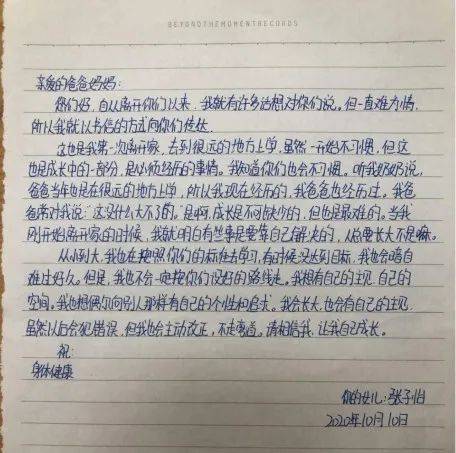 BEYONDTHEMOMENTRECORDS
亲爱的爸爸妈妈:
您们好,自从离开你们以来,我就有许多话想对你们说。但一直难为情,
所以我就以书信的方式向你们传达.
这也是我第一次离开家,去到很远的地方上学,虽然一开始不习惯,但这
也是成长中的一部分,是必须经历的事情。我知道你们也会不习惯。听我奶奶说,
爸爸当年也是在很远的地方上学,所以我现在经历的,我爸爸也经历过。我爸
爸常对我说:这没什么大不了的。是啊,成长是不可缺少的,但也是最难的。当我
刚开始离开家的时候,我就明白有些事是要靠自己解决的,人总要长大不是嘛。
从小到大,我也在按照你们的标准去学习,有时候没达到目标,我也会暗自
难过好久。但是,我也不会一定按你们设好的路线走。我想有自己的主观,自己的
空间。我也想偶尔向别人那样有自己的个性和追求。我会长大,也会有自己的主观
虽然以后会犯错误,但我也会主动改正,不走弯道。请相信我,让我自己成长。
祝:
身体健康
你的女儿:张子怡
2020年10月10日